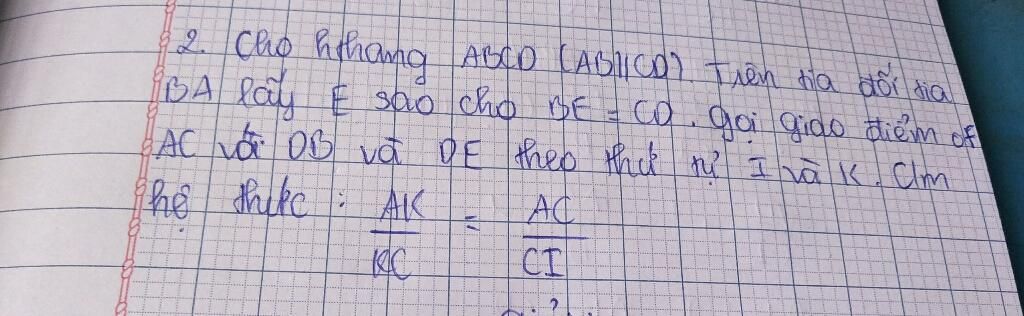 2. Cho hthang ABCD (AB//CD). Trên tia đối tia
BA lấy E sao cho BE = CD. gọi giao điểm of
AC với DB và DE theo thứ tự I và K. Cm
hệ thức : AK/KC = AC/CI